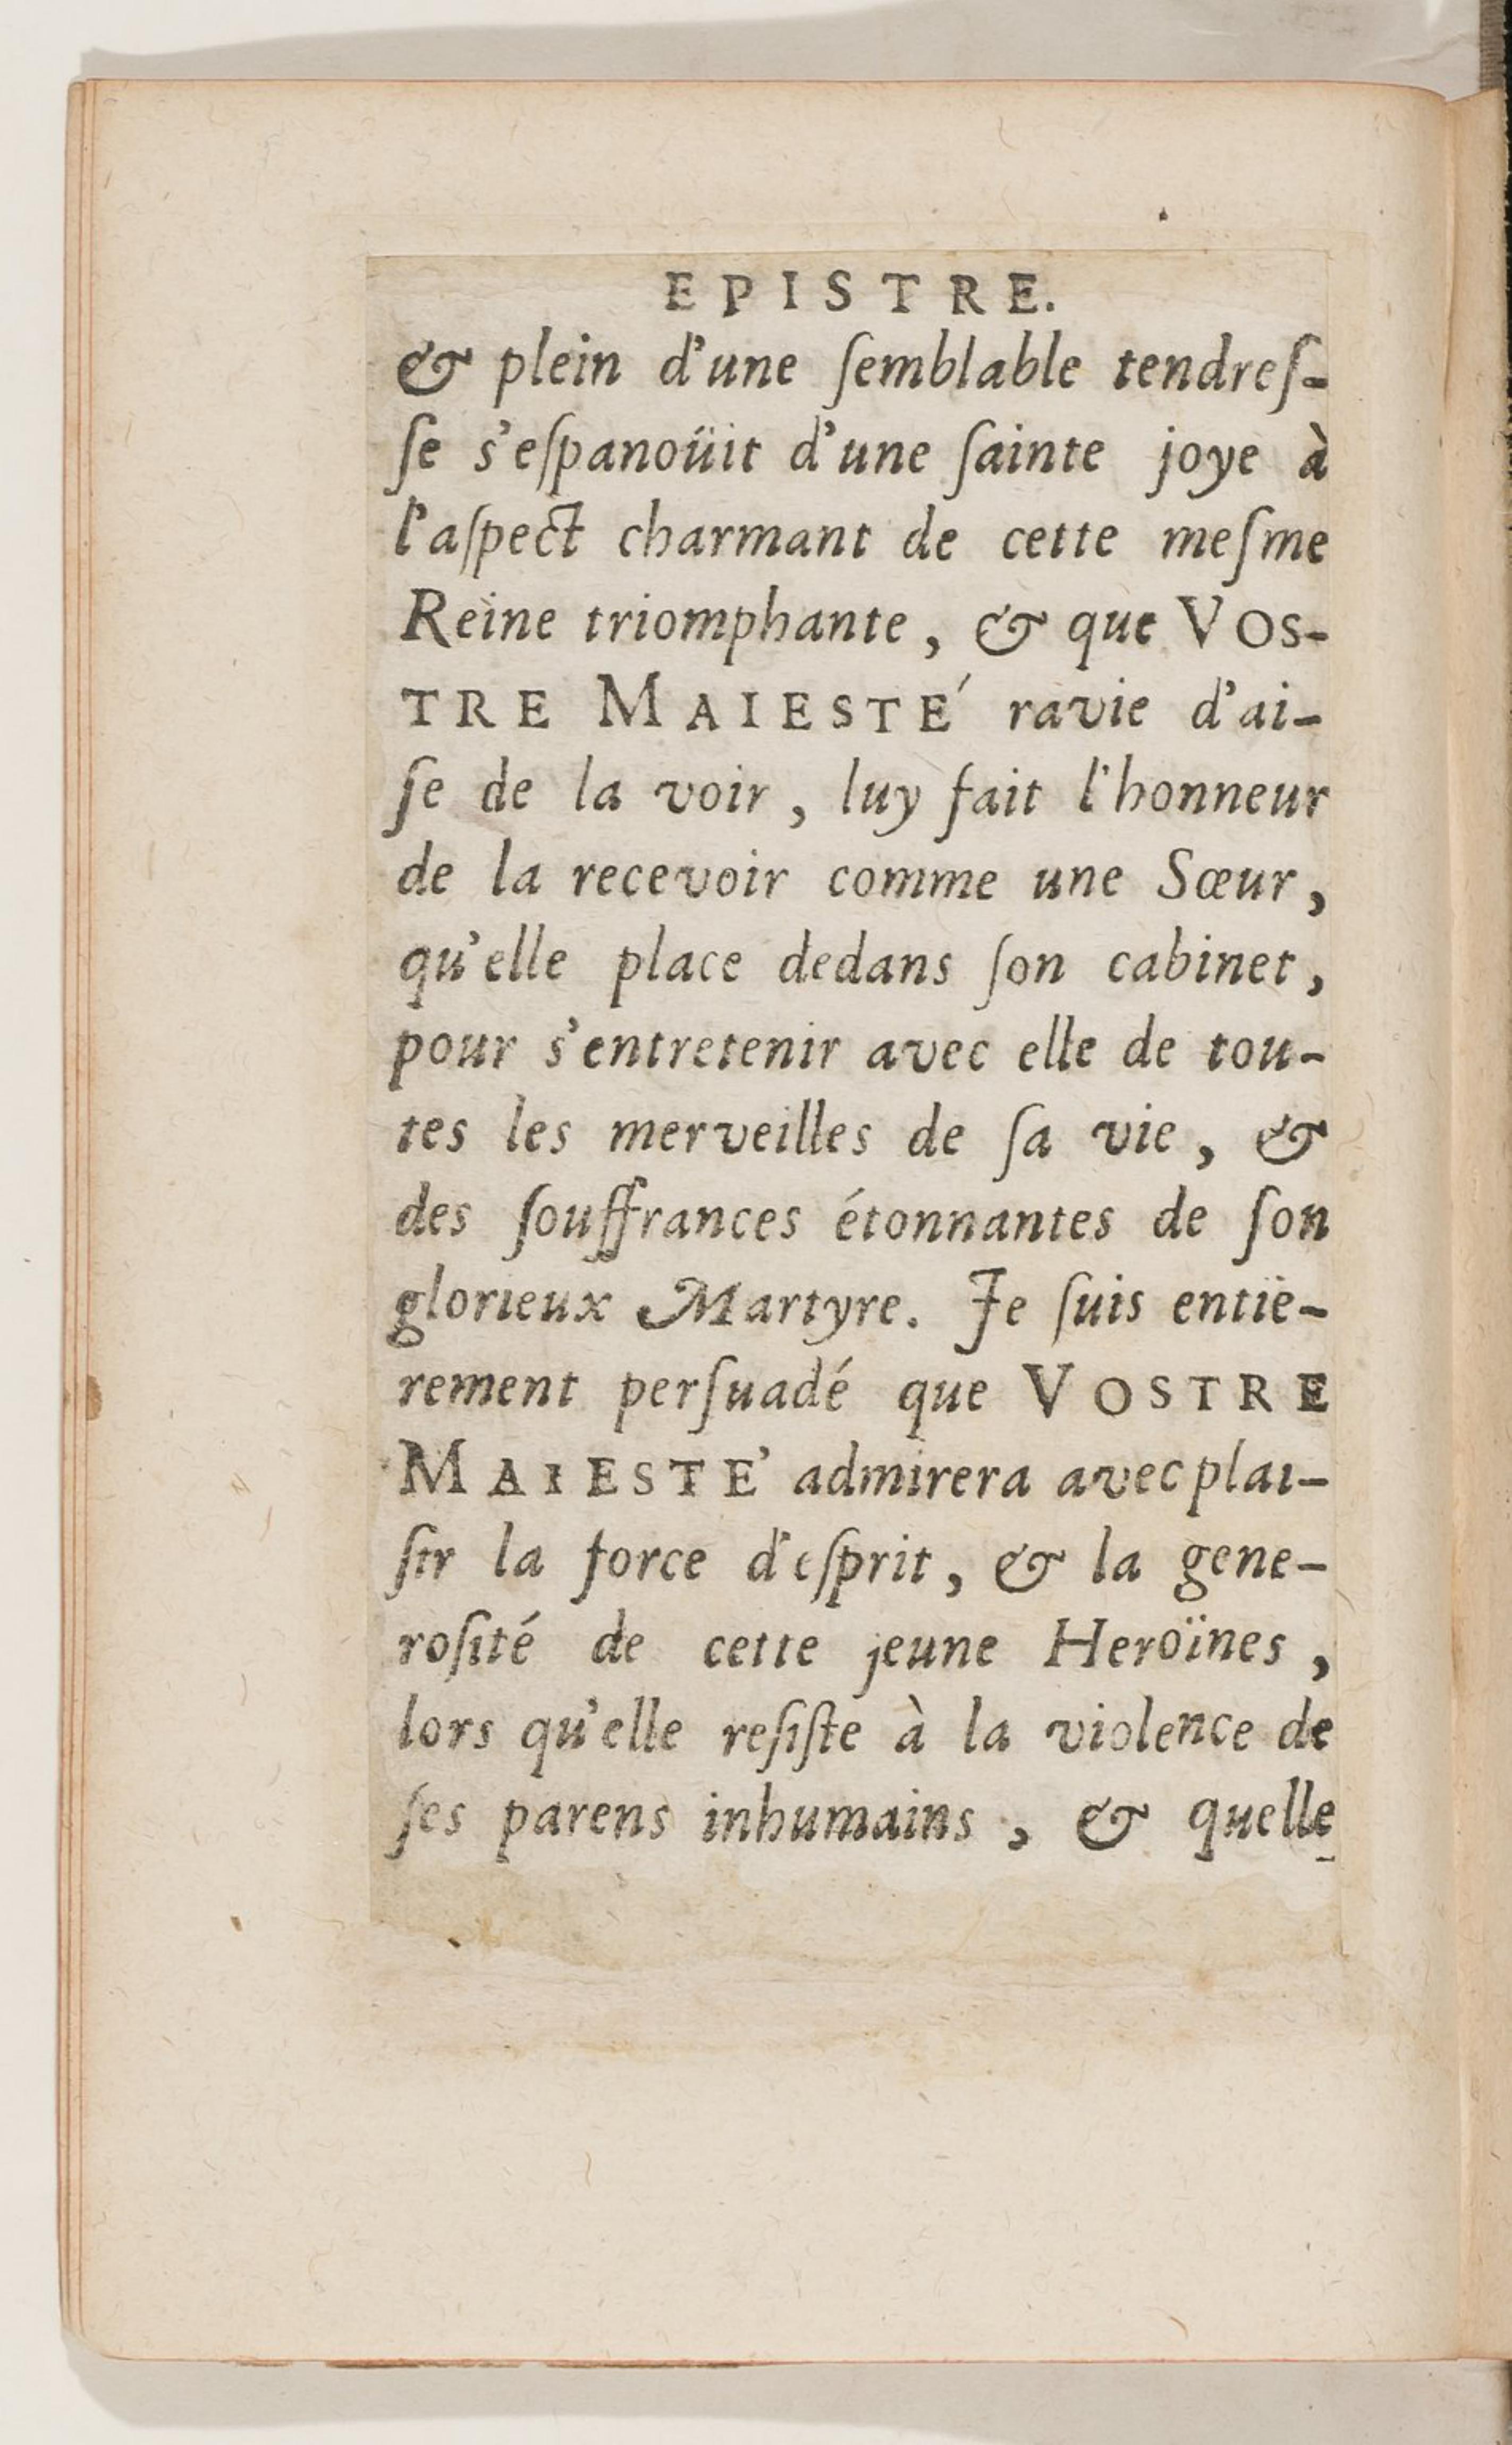 EPISTRE.
& plein d'une ſemblable tendreſ-
ſe s'eſpanoüit d'une ſainte joye à
l'aſpect charmant de cette meſme
Reine triomphante, & que VOS-
TRE MAIESTÉ ravie d'ai-
ſe de la voir, luy fait l'honneur
de la recevoir comme une Sœur,
qu'elle place dedans ſon cabinet,
pour s'entretenir avec elle de tou-
tes les merveilles de ſa vie, &
des ſouffrances étonnantes de ſon
glorieux Martyre. Je ſuis entie-
rement perſuadé que VOSTRE
MAIESTE' admirera avec plai-
ſir la force d'eſprit, & la gene-
roſité de cette jeune Heroïnes,
lors qu'elle reſiſte à la violence de
ſes parens inhumains, & quelle